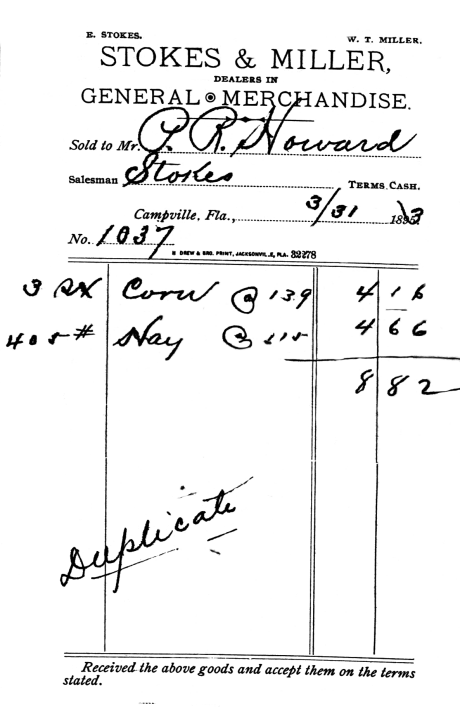 E. STOKES. W. T. MILLER.
STOKES & MILLER,
DEALERS IN
GENERAL MERCHANDISE.
Sold to Mr. P. R. Howard
Salesman Stokes TERMS CASH.
Campville, Fla., 3/31 189 3
No. 1037
H DREW & BRO. PRINT, JACKSONVILLE, FLA. 32278
3 sx Corn @ 139 4 16
405# Hay @ 115 4 66
8 82
Duplicate
Received the above goods and accept them on the terms
stated.